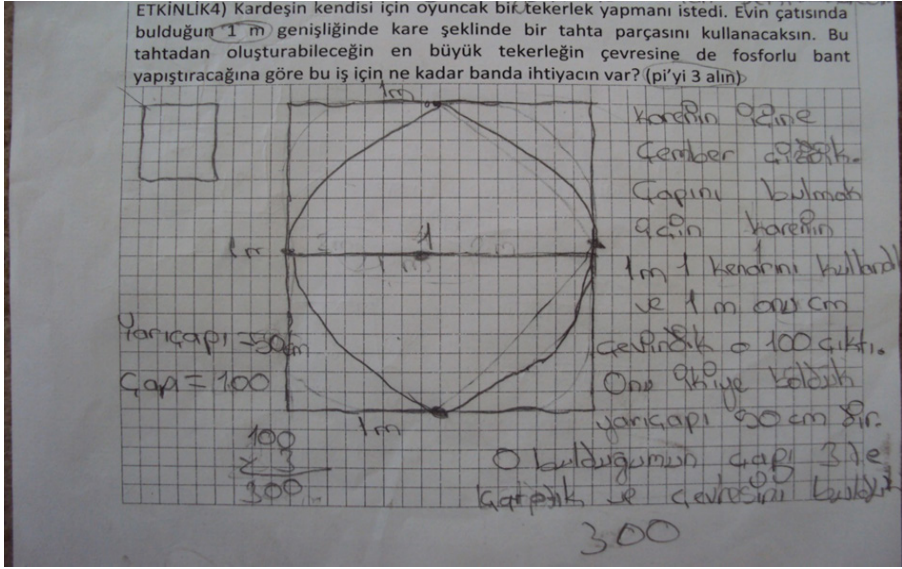 ETKİNLİK4) Kardeşin kendisi için oyuncak bir tekerlek yapmanı istedi. Evin çatısında
bulduğun 1 m genişliğinde kare şeklinde bir tahta parçasını kullanacaksın. Bu
tahtadan oluşturabileceğin en büyük tekerleğin çevresine de fosforlu bant
yapıştıracağına göre bu iş için ne kadar banda ihtiyacın var? (pi'yi 3 alın)
1m
1m
1
1m
1m
Yarıçapı = 50cm
Çapı = 100
100
x 3
300
karenin içine
Çember çizdik.
Çapını bulmak
için karenin
1m 1 kenarını kullandı
ve 1 m onu cm
çevirdik o 100 çıktı.
Onu ikiye böldük
yarıçapı 50 cm dir.
O bulduğumun çapı 3 le
çarptık ve çevresini bulduk
300